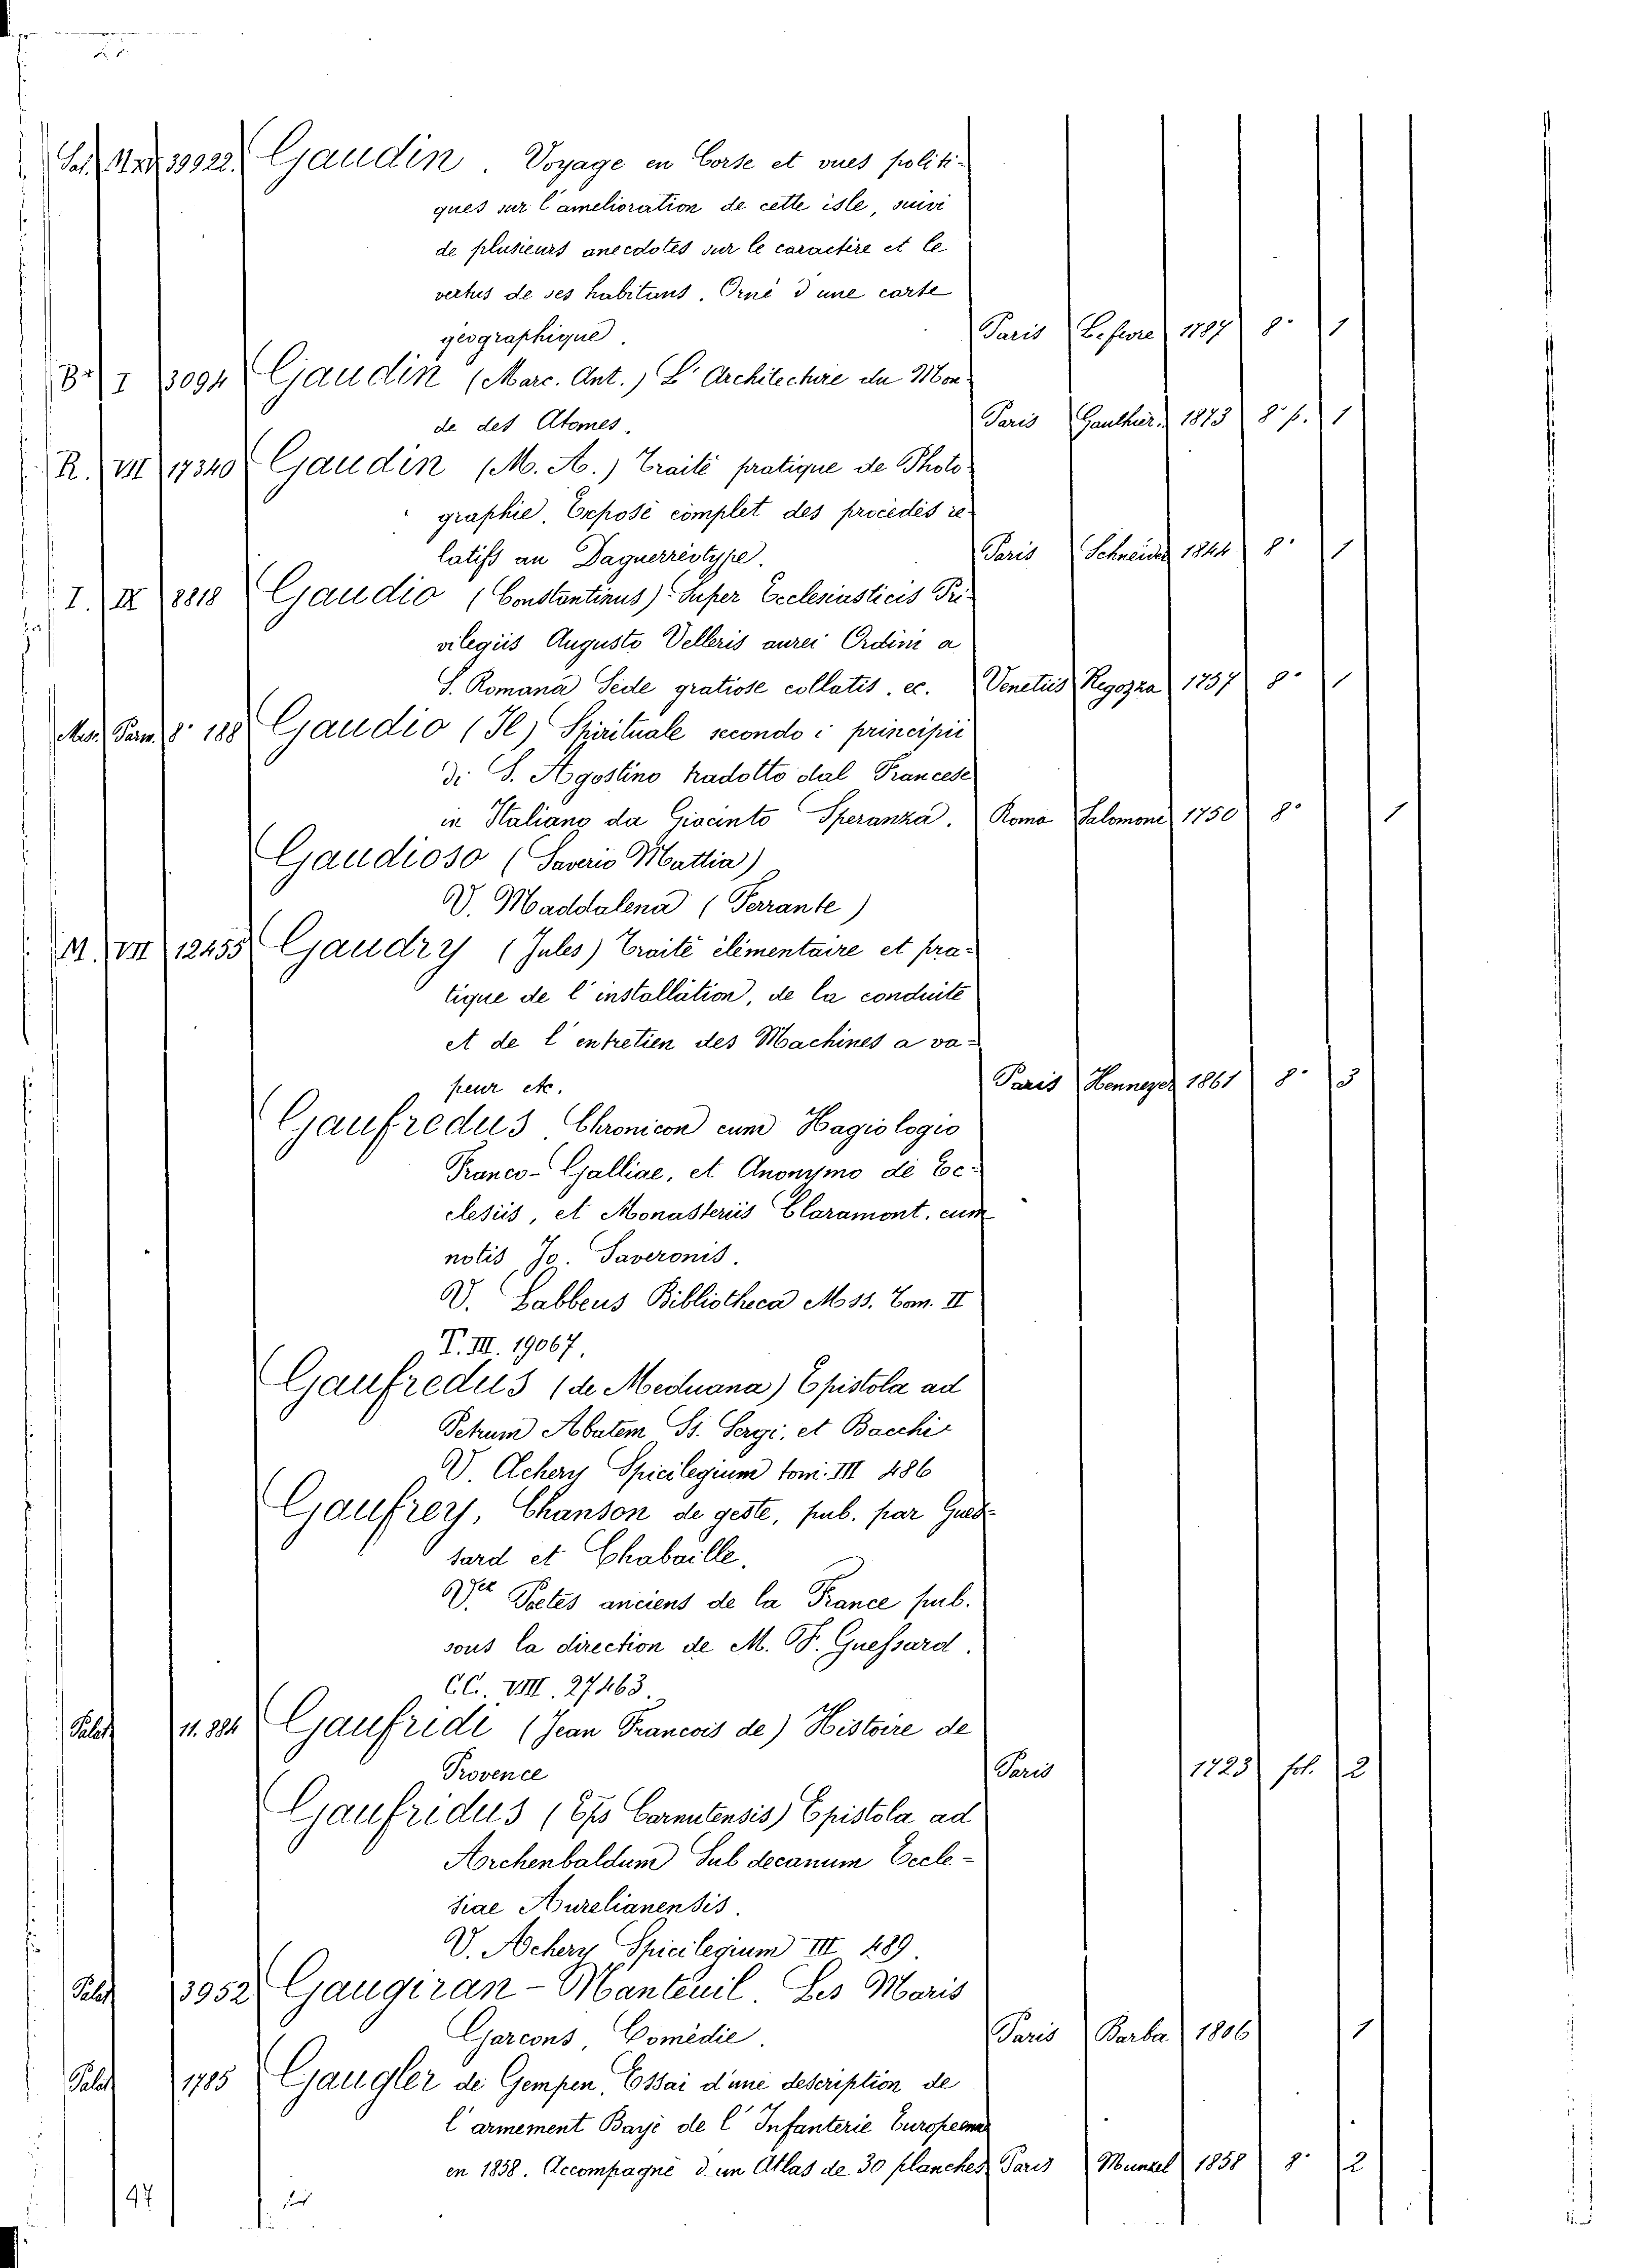 39922. Gaudin. Voyage en Corse et vues politi-
ques sur l'amelioration de cette isle, suivi
de plusieurs anecdotes sur le caractère et le
vertus de ses habitans. Orné d'une carte
géographique. Paris Lefevre 1787 8° 1
I 3094 Gaudin (Marc. Ant.) L'Architecture du Mon-
de des Atomes. Paris Gauthier. 1873 8° p. 1
R. VII 17340 Gaudin (M. A.) Traité pratique de Photo-
graphie. Exposé complet des procédés re-
latifs au Daguerréotype. Paris Schneider 1844 8° 1
I. IX 8818 Gaudio (Constantinus) Super Ecclesiasticis Pri-
vilegiis Augusto Velleris aurei Ordini a
S. Romana Sede gratiose collatis. ec. Venetiis Regozza 1737 8° 1
Mes. Pam. 8° 188 Gaudio (Il) Spirituale secondo i principii
di S. Agostino tradotto dal Francese
in Italiano da Giacinto Speranza. Roma Salomone 1750 8° 1
Gaudioso (Saverio Mattia)
V. Maddalena (Ferrante)
M. VII 12455 Gaudry (Jules) Traité élementaire et pra-
tique de l'installation, de la conduite
et de l'entretien des Machines a va-
peur etc. Paris Hennezer 1861 8° 3
Gaufredus Chronicon cum Hagiologio
Franco-Galliae, et Anonymo de Ec-
clesiis, et Monasteriis Claramont. cum
notis Jo. Saveronis.
V. Labbeus Bibliotheca Mss. Tom. II
T. III. 19067.
Gaufredus (de Meduana) Epistola ad
Petrum Abatem Ss. Sergi, et Bacchi-
V. Achery Spicilegium tom. III 486
Gaufrey, Chanson de geste, pub. par Gues-
sard et Chabaille.
V.er Poetes anciens de la France pub.
sous la direction de M. F. Guessard.
CC. VIII. 27463.
Palat 11.884 Gaufridi (Jean Francois de) Histoire de
Provence Paris 1723 fol. 2
Gaufridus (Eps Carnutensis) Epistola ad
Archenbaldum Sub decanum Eccle-
siae Aurelianensis.
V. Achery Spicilegium III 489.
Palat 3952 Gaugiran-Manteuil. Les Maris
Garcons, Comédie. Paris Barba 1806 1
Palat 1785 Gaugler de Gempen. Essai d'une description de
l'armement Rayé de l'Infanterie Europeenne
en 1858. Accompagné d'un Atlas de 30 planches Paris Munzel 1858 8° 2
47